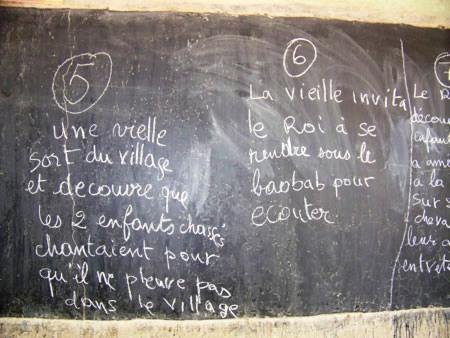 5
une vielle
sort du village
et decouvre que
les 2 enfants chassés
chantaient pour
qu'il ne pleuve pas
dans le village
6
La vieille invita
le Roi à se
rendre sous le
baobab pour
ecouter.
7
Le R
décou
enfan
a ame
à la
sur s
cheva
leur a
entret